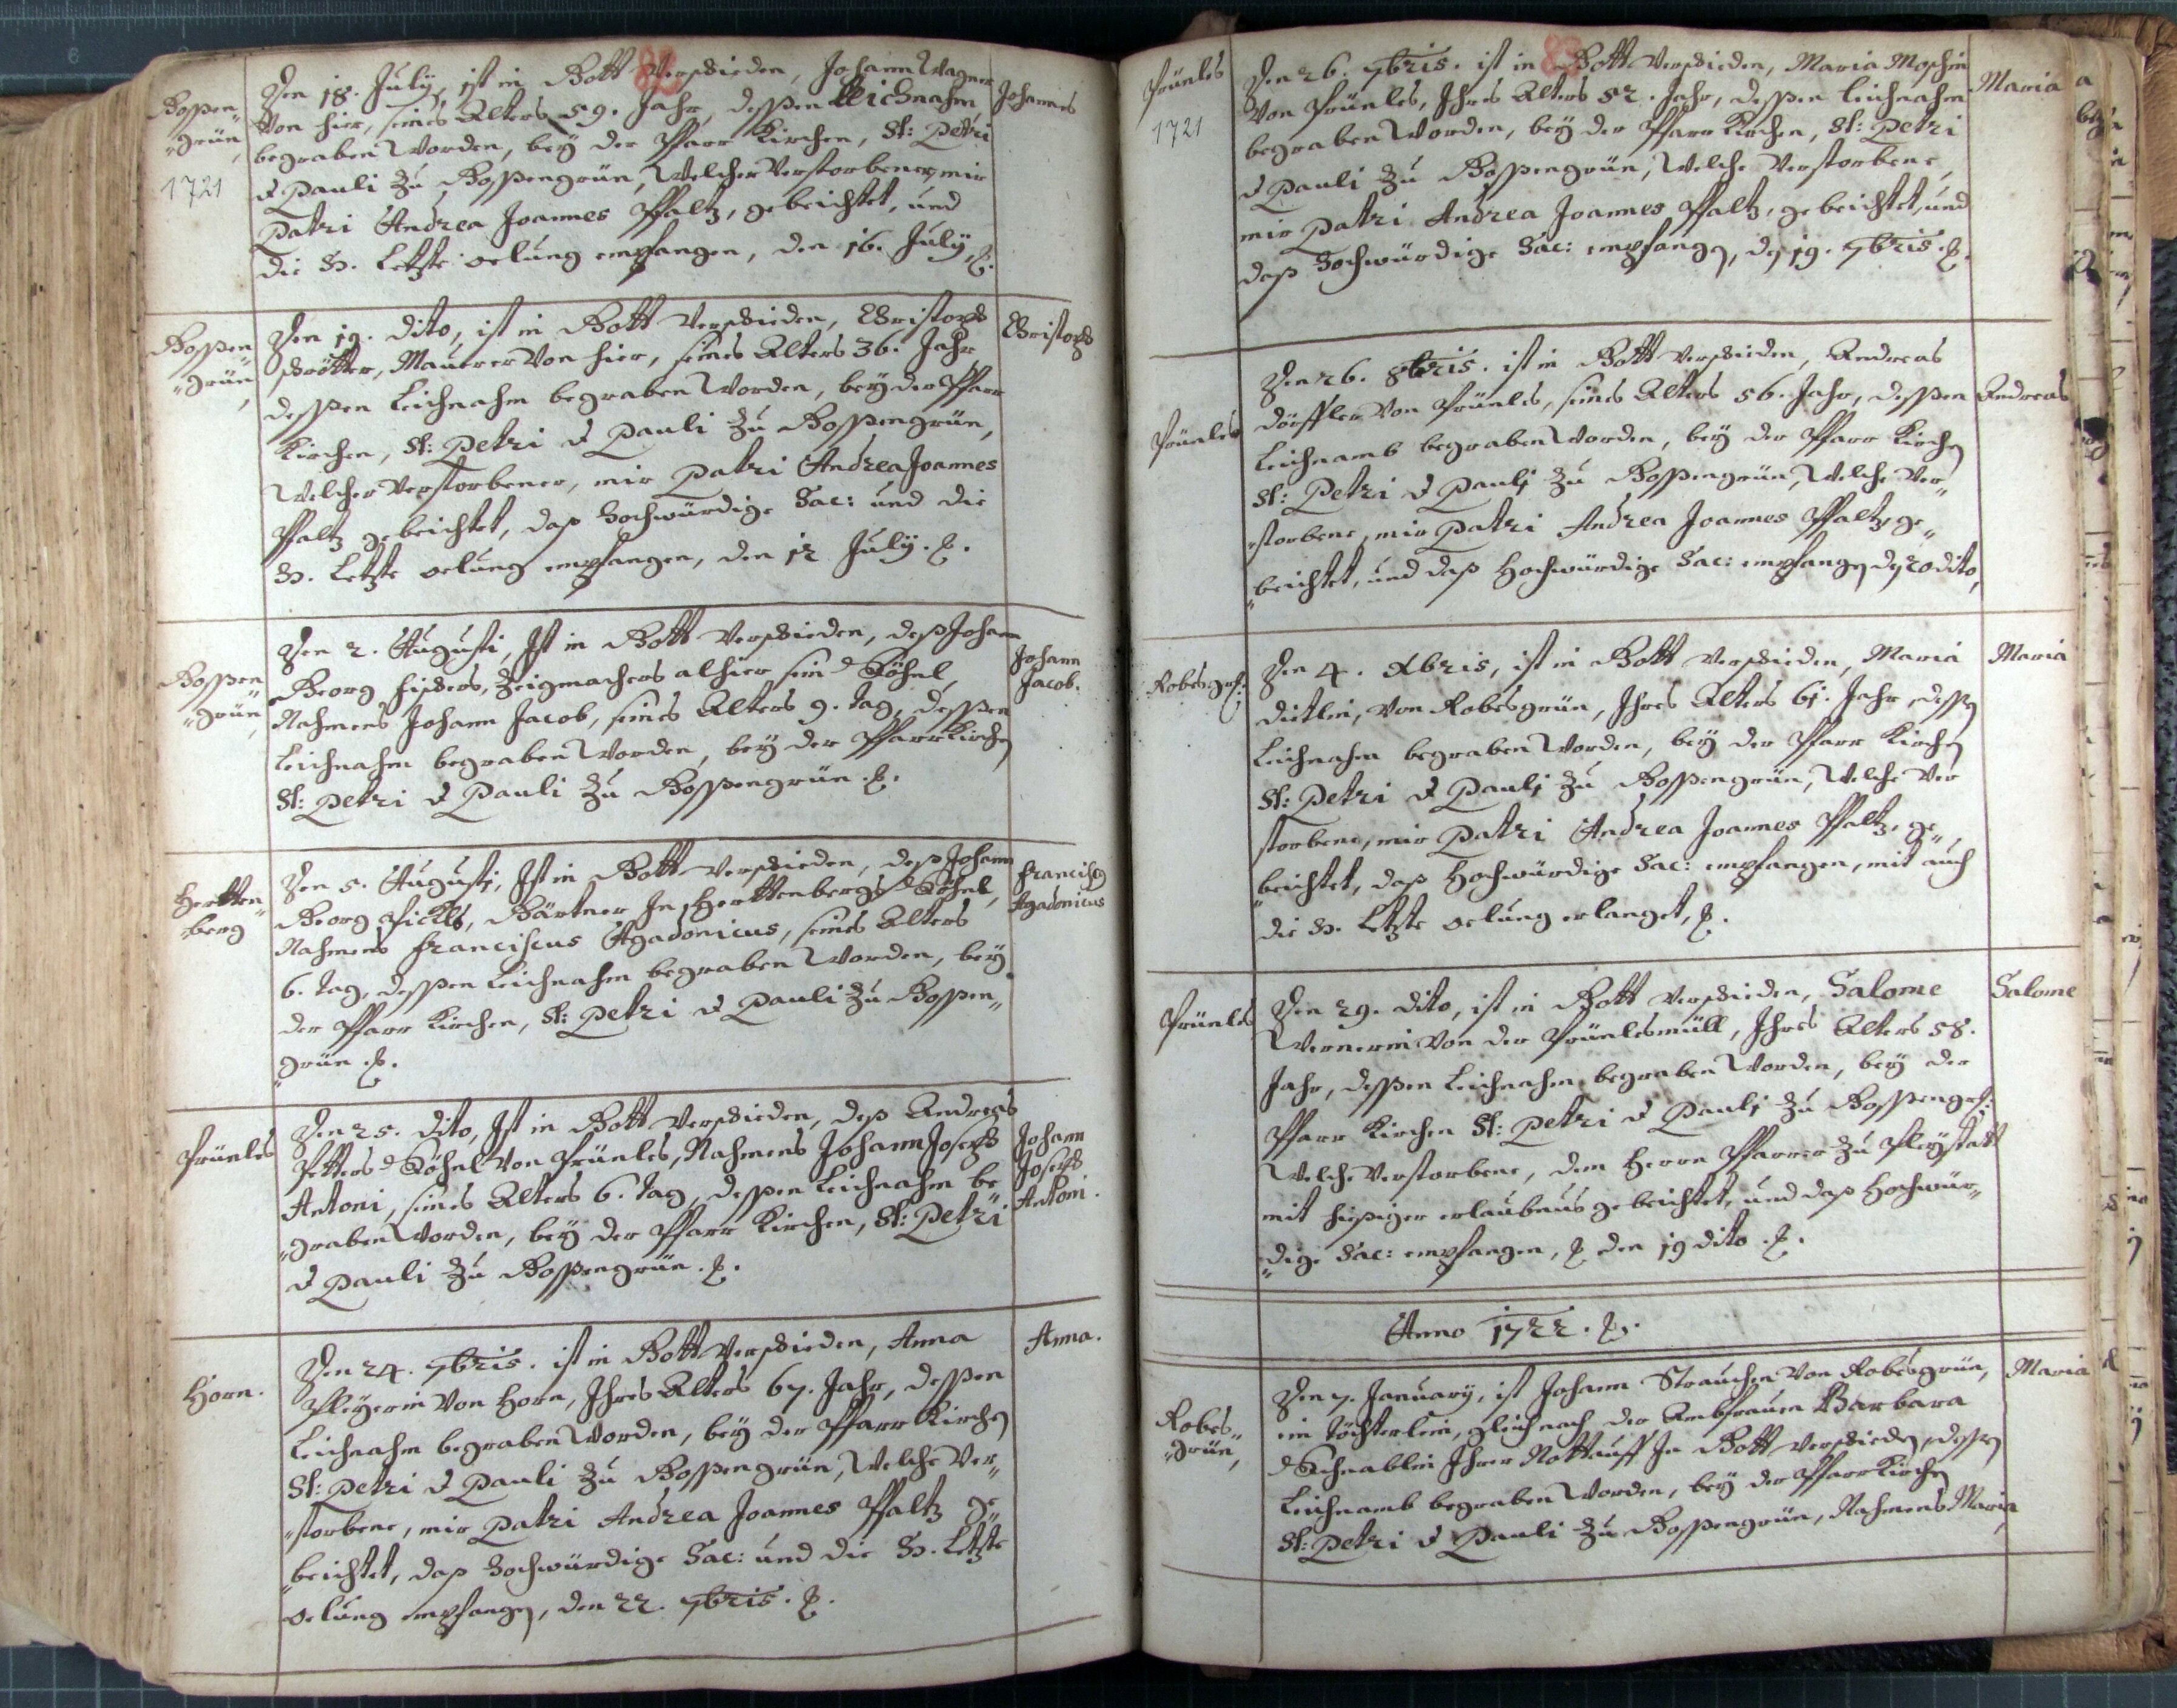 82
Bossen„
„grün,
1721
Den 18. July, ist in Gott verschieden, Johann Wagner
Von hier, seines Alters 59. Jahr, dessen Leichnahm
begraben Worden, bey der Pfarr Kirchen, St: Petri
& Pauli Zu Bossengrün, Welcher Verstorbener, mir
Patri Andrea Joannes Pfaltz, gebeichtet, und
die H. Letzte oelung empfangen, den 16. July. &.
Johannes
Bossen„
„grün,
Den 19. dito, ist in Gott Verschieden, Christoph
schrötter, Maurer Von hier, seines Alters 36. Jahr,
dessen Leichnahm begraben Worden, bey der Pfarr
Kirchen, St: Petri & Pauli Zu Bossengrün,
Welcher Verstorbener, mir Patri Andrea Joannes
Pfaltz gebeichtet, daß Hochwürdige Sac: und die
H. Letzte oelung empfangen, den 12 July. &.
Christoph
Bossen„
„grün,
Den 2. Augusti, Ist in Gott Verschieden, deß Johann
Georg fischers, Zeigmachers alhier sein Söhnl,
Nahmens Johann Jacob, seines Alters 9. tag, dessen
Leichnahm begraben Worden, bey der Pfarr Kirchen
St: Petri & Pauli Zu Bossengrün. &.
Johann
Jacob.
Hertten„
„berg
Den 5. Augusti, Ist in Gott Verschieden, deß Johann
Georg Pickls, Gärtner In Herttenbergs Söhnl,
Nahmens franciscus Agadonicus, seines Alters
6. tag, dessen Leichnahm begraben Worden, bey
der Pfarr Kirchen, St: Petri & Pauli Zu Bossen„
„grün. &.
Franciscus
Agadonicus
Prünles
Den 25. dito, Ist in Gott Verschieden, deß Andreas
Petters Söhnl Von Prünles, Nahmens Johann Joseph
Antoni, seines Alters 6. tag, dessen Leichnahm be
„graben Worden, bey der Pfarr Kirchen, St: Petri
& Pauli Zu Bossengrün. &.
Johann
Joseph
Antoni.
Horn.
Den 24. 7bris. ist in Gott Verschieden, Anna
Pleyerin Von Horn, Ihres Alters 67. Jahr, dessen
Leichnahm begraben Worden, bey der Pfarr Kirchen
St: Petri & Pauli Zu Bossengrün, Welche Ver„
„storbene, mir Patri Andrea Joannes Pfaltz ge
„beichtet, daß Hochwürdige Sac: und die H. Letzte
oelung empfangen, den 22. 7bris. &.
Anna.
83
Prünles
1721
Den 26. 7bris. ist in Gott Verschieden, Maria Moschin
Von Prünles, Ihres Alters 52. Jahr, dessen Leichnahm
begraben Worden, bey der Pfarr Kirchen, St: Petri
& Pauli Zu Bossengrün, Welche Verstorbene,
mir Patri Andrea Joannes Pfaltz, gebeichtet, und
daß Hochwürdige Sac: empfangen, den 19. 7bris. &.
Maria
Prünles
Den 26. 8bris. ist in Gott Verschieden, Andreas
dörffler Von Prünles, seines Alters 56. Jahr, dessen
Leichnamb begraben Worden, bey der Pfarr Kirchen
St: Petri & Pauli Zu Bossengrün, Welche Ver„
„storbene, mir Patri Andrea Joannes Pfaltz, ge„
„beichtet, und daß Hochwürdige Sac: empfangen den 20 dito,
Andreas
Robesgrü:
Den 4. Xbris, ist in Gott Verschieden, Maria
dietlin, Von Robesgrün, Ihres Alters 61. Jahr, dessen
Leichnahm begraben Worden, bey der Pfarr Kirchen
St: Petri & Pauli Zu Bossengrün, Welche Ver
storbene, mir Patri Andrea Joannes Pfaltz, ge„
„beichtet, daß Hochwürdige Sac: empfangen, mit auch
die H. Letzte oelung erlanget, &.
Maria
Prünles
Den 29. dito, ist in Gott Verschieden, Salome
Wernerin Von der Prünlesmüll, Ihres Alters 58.
Jahr, dessen Leichnahm begraben Worden, bey der
Pfarr Kirchen St: Petri & Pauli Zu Bossengrü:
Welche Verstorbene, dem Herrn Pfarrer Zu Pleystatt
mit hiesiger erlaubnus gebeichtet, und daß Hochwür„
„dige Sac: empfangen, & den 19 dito. &.
Salome
Anno 1722. &.
Robes„
„grün,
Den 7. January, ist Johann Strauchen Von Robesgrün,
ein töchterlein, gleich nach der Ambfrauen Barbara
Schnablin Ihrer Nottauff In Gott Verschieden, dessen
Leichnamb begraben Worden, bey der Pfarr Kirchen
St: Petri & Pauli Zu Bossengrün, Nahmens Maria,
Maria